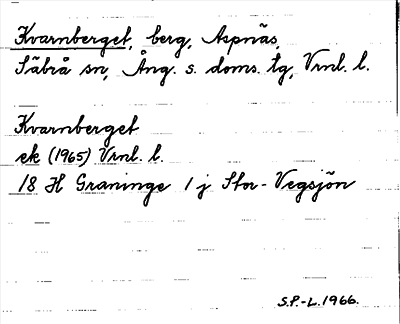 Kvarnberget, berg, Aspnäs,
Säbrå sn, Ång. s. doms. tg, Vrnl. l.
Kvarnberget
ek (1965) Vrnl. l.
18 H Graninge 1 j Stor-Vegsjön
S.P.-L. 1966.